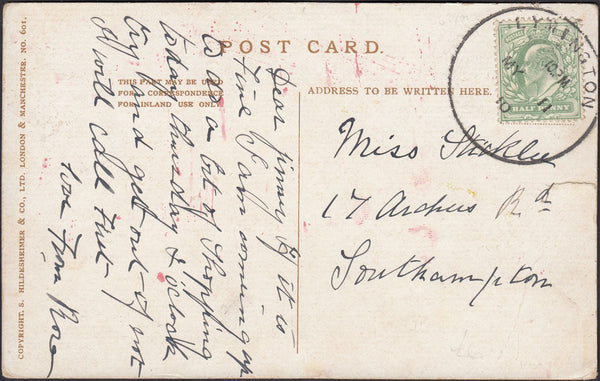 POST CARD.
THIS PART MAY BE USED
FOR CORRESPONDENCE
FOR INLAND USE ONLY
ADDRESS TO BE WRITTEN HERE.
COPYRIGHT. S. HILDESHEIMER & CO., LTD. LONDON & MANCHESTER. NO. 601.
LYMINGTON
MY 11
10
HALF PENNY
Miss
17 Archers Rd
Southampton
Dear if it is
fine I am coming up
to do a bit of Shopping
thursday 2 oclock
try and get out if not
I will call
love from Rose